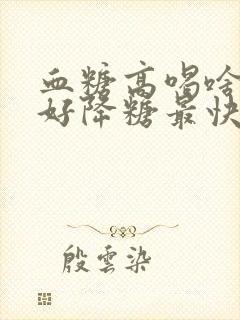 血糖高喝啥
好降糖最快
殷雲染